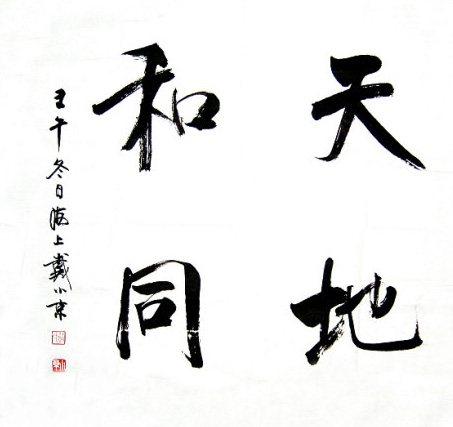 天地
和同
壬午冬日海上戴小京